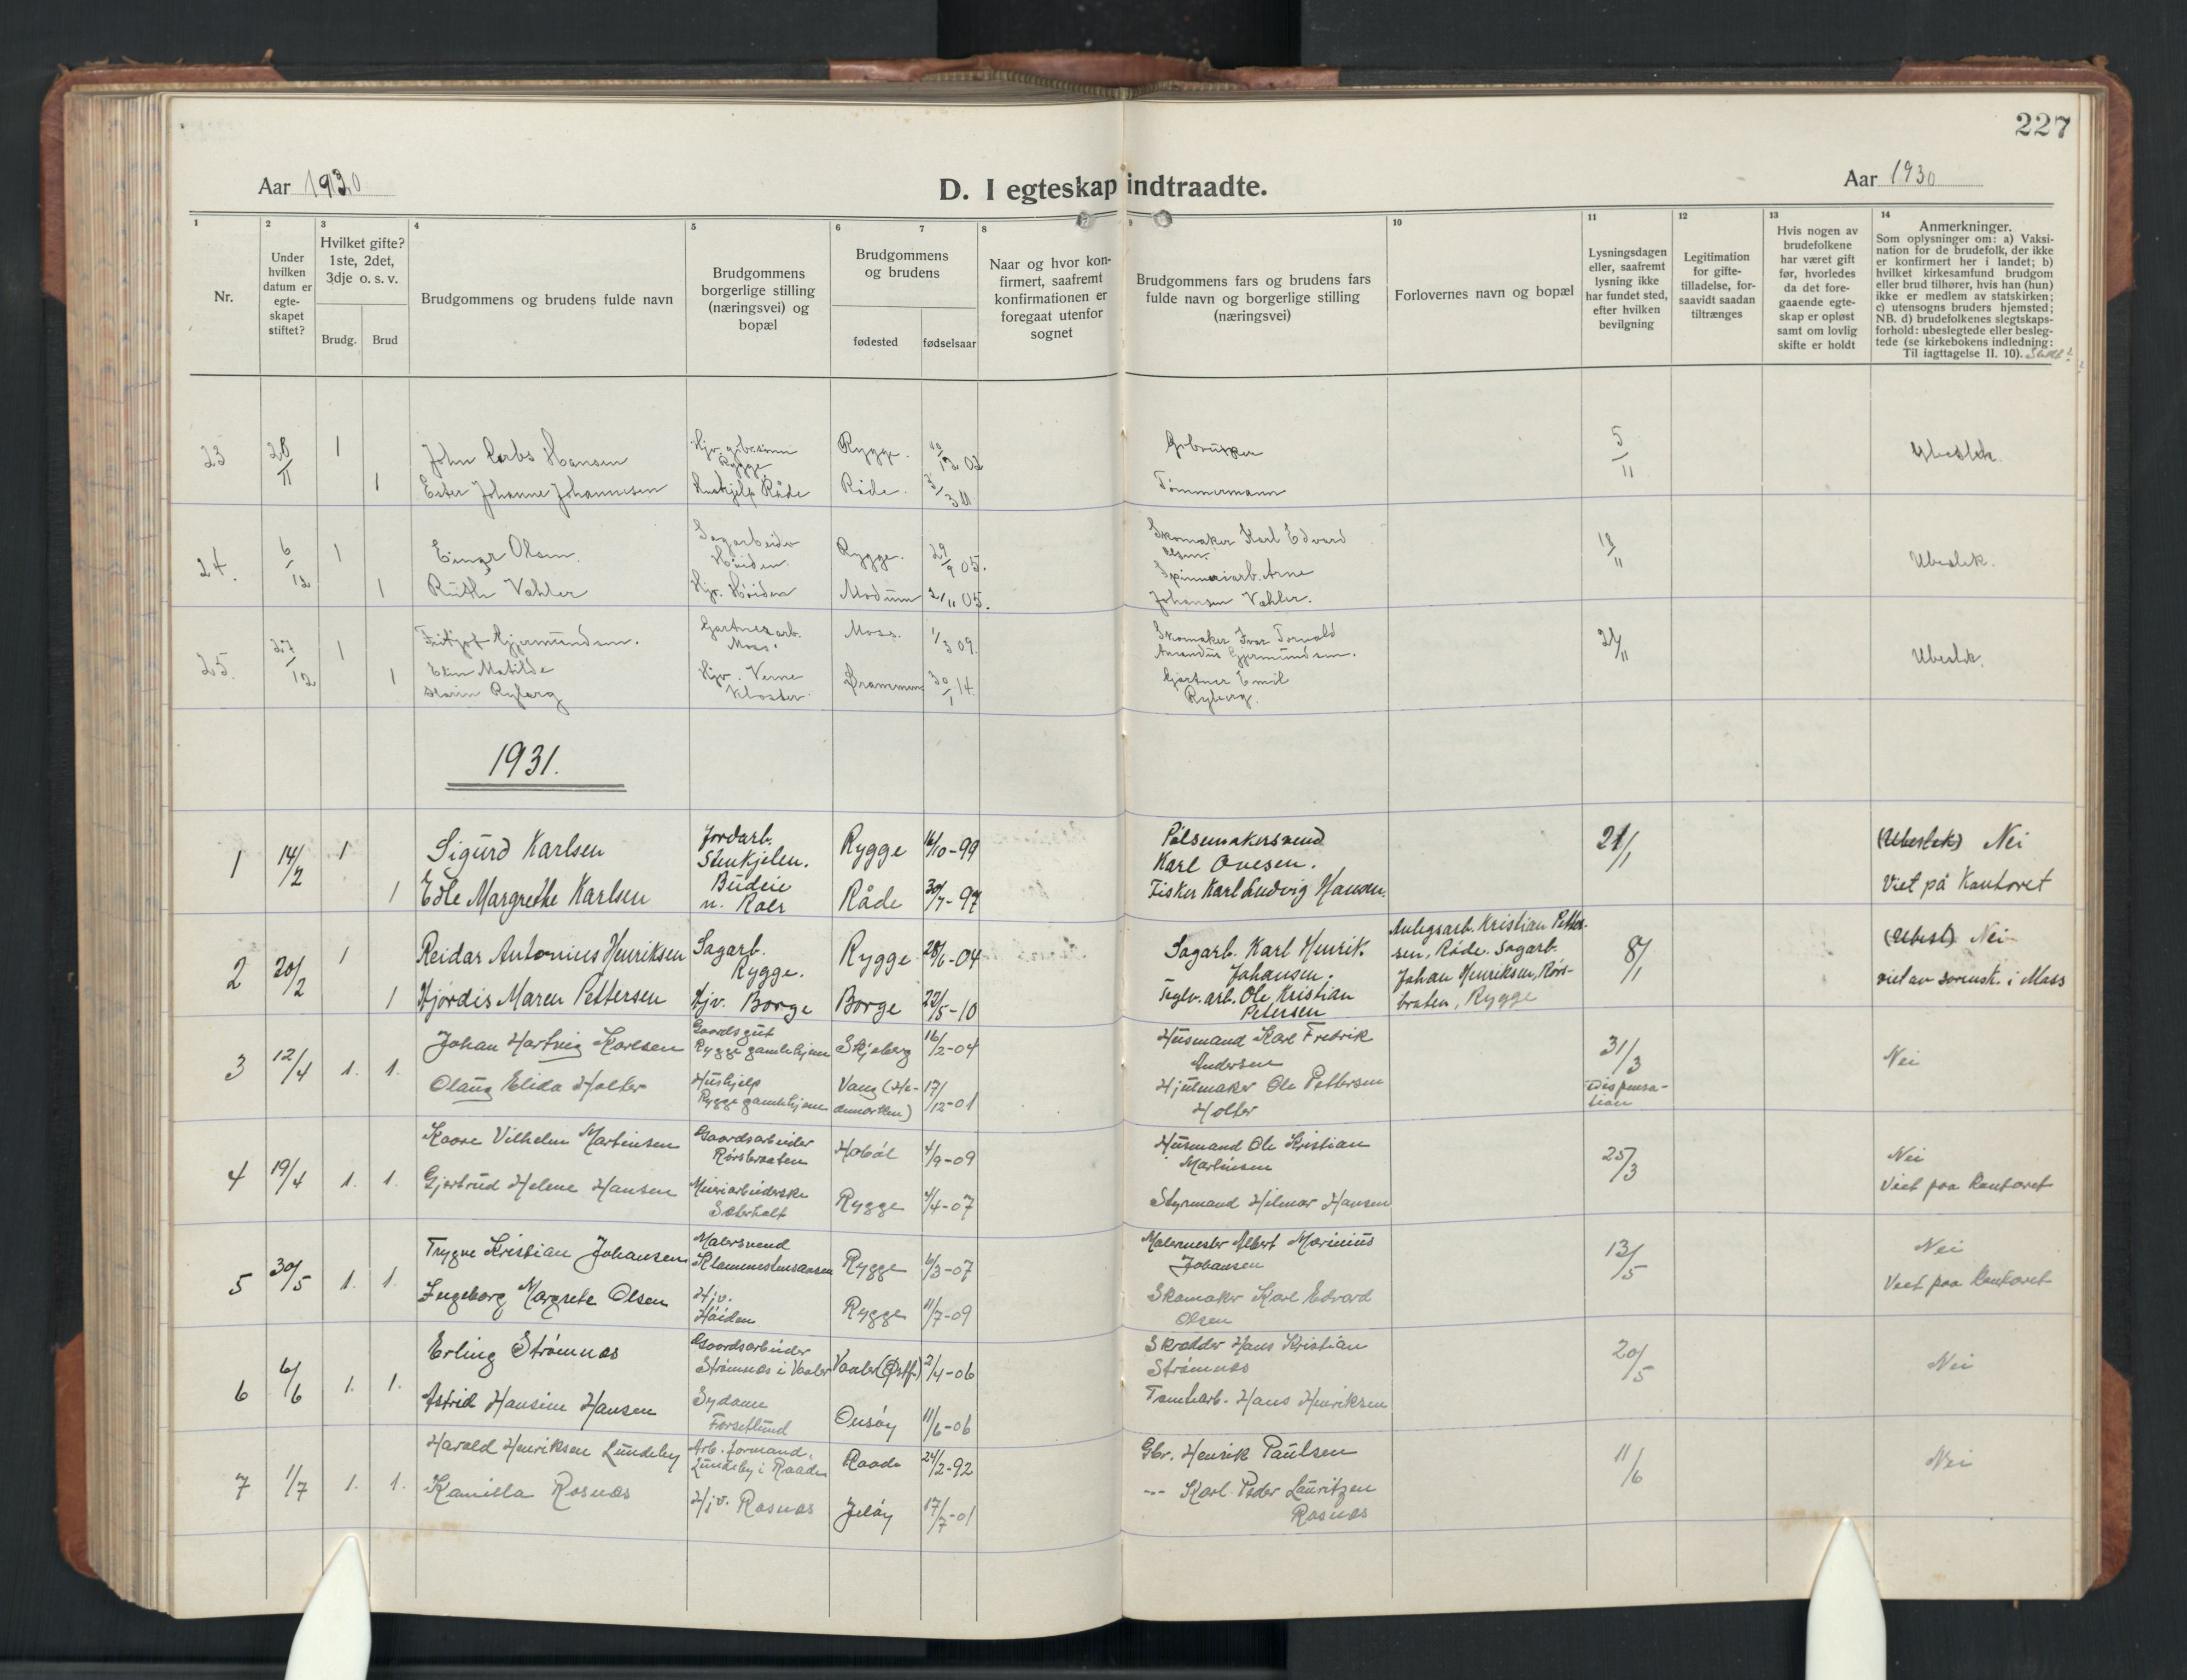 227
Aar 1930
D. I egteskap indtraadte.
Aar 1930
1 2 3 4 5 6 7 8 9 10 11 12 13 14
Nr.
Under hvilken datum er egte-skapet stiftet?
Hvilket gifte? 1ste, 2det, 3dje o. s. v.
Brudg. Brud
Brudgommens og brudens fulde navn
Brudgommens borgerlige stilling (næringsvei) og bopæl
Brudgommens og brudens
fødested fødselsaar
Naar og hvor kon-firmert, saafremt konfirmationen er foregaat utenfor sognet
Brudgommens fars og brudens fars fulde navn og borgerlige stilling (næringsvei)
Forlovernes navn og bopæl
Lysningsdagen eller, saafremt lysning ikke har fundet sted, efter hvilken bevilgning
Legitimation for gifte-tilladelse, for-saavidt saadan tiltrænges
Hvis nogen av brudefolkene har været gift før, hvorledes da det fore-gaaende egte-skap er opløst samt om lovlig skifte er holdt
Anmerkninger.
Som oplysninger om: a) Vaksi-nation for de brudefolk, der ikke er konfirmert her i landet; b) hvilket kirkesamfund brudgom eller brud tilhører, hvis han (hun) ikke er medlem av statskirken; c) utensogns bruders hjemsted; NB. d) brudefolkenes slegtskaps-forhold: ubeslegtede eller besleg-tede (se kirkebokens indledning: Til iagttagelse II. 10).
23 28/11 1 John Hansen Rygge Rygge. 02 Gbruker 5/11 Ubeslek.
1 Ester Johanne Johannesen Råde Råde. 3/3 11 Tømmermann
24. 6/12 1 Einar Olsen Sagarbeider Høiden. Rygge. 29/9 05. Skomaker Karl Edvard Olsen. Ubeslek.
1 Ruth Vahler Hjv. Høiden Modum 2/11 05. Spinneriarb. Arne Johansen Vahler.
25. 27/12 1 Fritjof Gjermundsen. Gartnerarb. Moss. Moss. 1/3 09. Skomaker Ivar Torvald Amandus Gjermundsen. Ubeslek.
1 Elin Matilde Karin Ryberg Hjv. Verne Kloster Drammen 30/1 14. Gartner Emil Ryberg.
1931.
1 14/2 1 Sigurd Karlsen Jordarb. Rygge 16/10-99 Pølsemakersvend Karl Ovesen. 21/1 (Ubeslek) Nei
1 Edle Margrethe Karlsen Budeie n. Roer Råde 30/7-97 Fisker Karl Ludvig Hansen. Viet på Kontoret
2 20/2 1 Reidar Antonius Henriksen Sagarb. Rygge. Rygge 28/6-04 Sagarb. Karl Henrik Johansen. Anlegsarb. Kristian Pettersen, Råde. Sagarb. Johan Henriksen, Rørsbraten, Rygge 8/1 (Ubesl) Nei
1 Hjørdis Maren Pettersen Hjv. Borge Borge 22/5-10 Teglv. arb. Ole Kristian Petersen viet av sorensk. i Moss
3 12/4 1. 1. Johan Hartvig Karlsen Gaardsgut Rygge gamlehjem Skjeberg 16/2-04 Husmand Karl Fredrik Andersen 31/3 Dispensation Nei
Olaug Elida Holter Hushjelp Rygge gamlehjem Vang (Hedemarken) 17/12-01 Hjulmaker Ole Pettersen Holter
4 19/4 1. 1. Kaare Vilhelm Martinsen Gaardsarbeider Rørsbraaten Hobøl 4/9-09 Husmand Ole Kristian Martinsen 25/3 Nei
Gjertrud Helene Hansen Meieriarbeiderske Rygge 4/4-07 Styrmand Hilmar Hansen Viet paa Kontoret
5 30/5 1. 1. Trygve Kristian Johansen Malersvend Rygge 6/3-07 Malermester Albert Marinius Johansen 13/5 Nei
Ingeborg Margrete Olsen Hjv. Høiden Rygge 11/7-09 Skomaker Karl Edvard Olsen Viet paa Kontoret
6 6/6 1. 1. Erling Strømnæs Gaardsarbeider Strømnæs i Vaaler Vaaler (Østf.) 2/4-06 Skrædder Hans Kristian Strømnæs 20/5 Nei
Astrid Hansine Hansen Sydame Forsetlund Onsøy 11/6-06 Tomtarb. Hans Henriksen
7 1/7 1. 1. Harald Henriksen Lundeby Arb. formand. Lundeby i Raade Raade 24/2-92 Gbr. Henrik Paulsen 11/6 Nei
Kamilla Rosnæs Hjv. Rosnæs Jeløy 17/7-01 -- Karl Peder Lauritzen Rosnæs